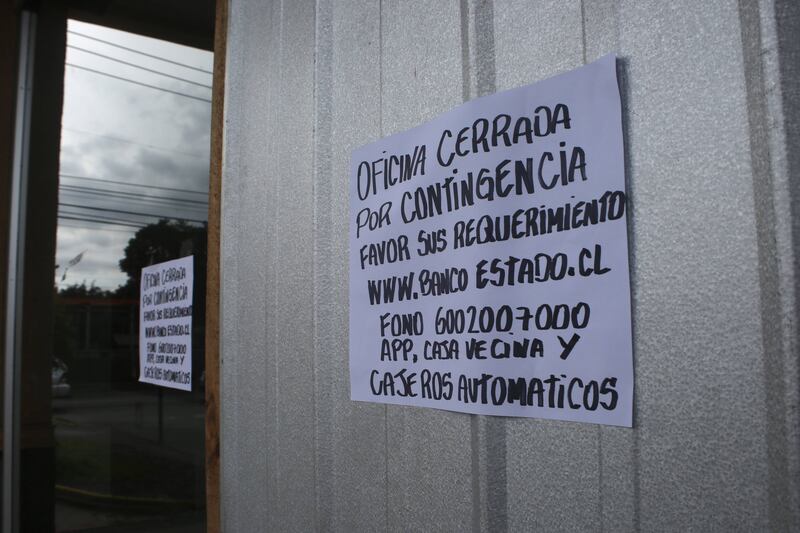 OFICINA CERRADA
POR CONTINGENCIA
FAVOR SUS REQUERIMIENTO
WWW.BANCO ESTADO.CL
FONO 6002007000
APP, CAJA VECINA Y
CAJEROS AUTOMATICOS
OFICINA CERRADA
POR CONTINGENCIA
FAVOR SUS REQUERIMIENTO
WWW.BANCO ESTADO.CL
FONO 6002007000
APP, CAJA VECINA Y
CAJEROS AUTOMATICOS